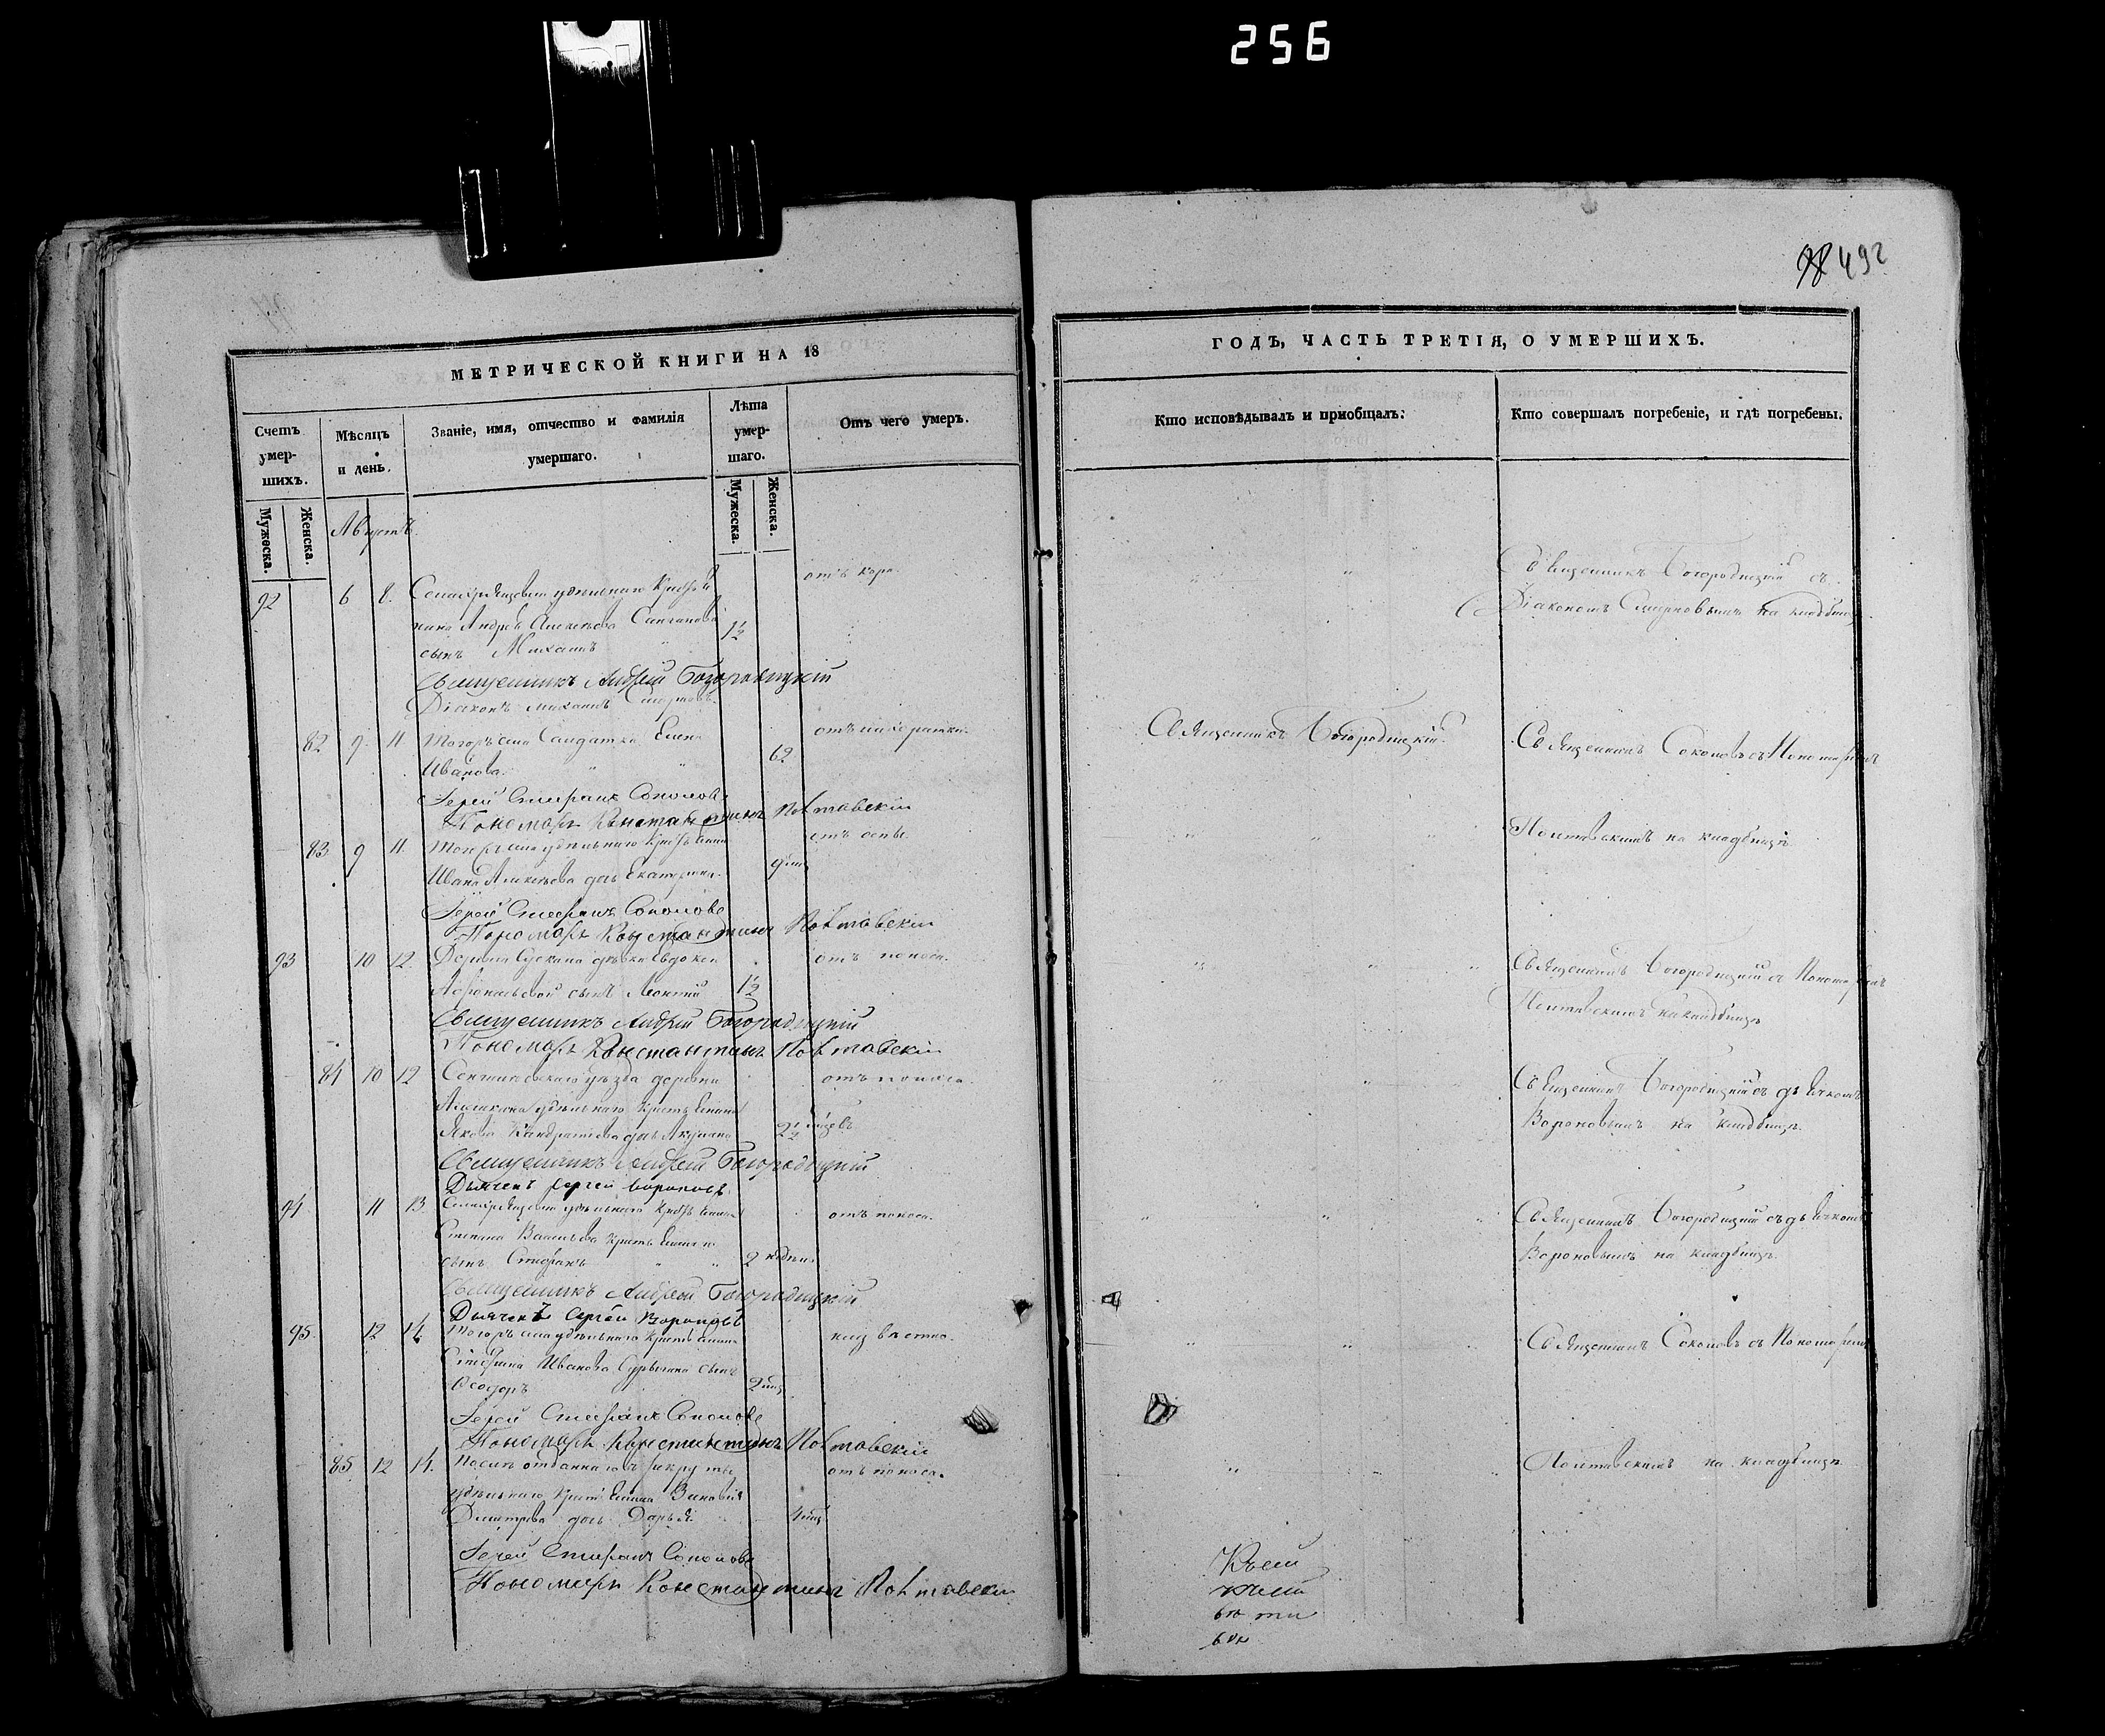 256
98 492
МЕТРИЧЕСКОЙ КНИГИ НА 18
Счетъ умер-шихъ.
Мужеска.
Женска.
Мѣсяцъ и день.
Званіе, имя, отчество и фамилія умершаго.
Лѣта умер-шаго.
Мужеска.
Женска.
Отъ чего умеръ.
Августъ
92 6 8. удѣльнаго
Андрея Алексѣева
сынъ Михаилъ 1½
отъ кори.
Священникъ Андрей Богородицкій
Діаконъ Михаилъ Смирновъ
82 9 11 Солдатка Елена
Иванова 62
Іерей Стефанъ Соколовъ
Пономарь Константинъ Полтавскій
83 9 11. удѣльнаго крестьянина
Ивана Алексѣева дочь Екатерина 9 мцъ
отъ оспы.
Іерей Стефанъ Соколовъ
Пономарь Константинъ Полтавскій
93 10 12. Деревни
сынъ Леонтій 1½
отъ поноса.
Священникъ Андрей Богородицкій
Пономарь Константинъ Полтавскій
84 10 12 уѣзда деревни
удѣльнаго крестьянина
Якова Кондратьева дочь 2½
отъ поноса.
Священникъ Андрей Богородицкій
Дьячекъ Сергей Вороновъ
94 11 13. удѣльнаго крестьянина
Степана Васильева
сынъ Стефанъ 2 недѣли
отъ поноса.
Священникъ Андрей Богородицкій
Дьячекъ Сергей Вороновъ
95 12 14 удѣльнаго крестьянина
Стефана Иванова сынъ
Ѳеодоръ 2 мцъ
Іерей Стефанъ Соколовъ
Пономарь Константинъ Полтавскій
85 12 14. Послѣ отданнаго въ рекруты
удѣльнаго крестьянина Зиновія
Дмитріева дочь Дарья 4 мцъ
отъ поноса.
Іерей Стефанъ Соколовъ
Пономарь Константинъ Полтавскій
ГОДЪ, ЧАСТЬ ТРЕТІЯ, О УМЕРШИХЪ.
Кто исповѣдывалъ и пріобщалъ:
Кто совершалъ погребеніе, и гдѣ погребены.
Священникъ Богородицкій съ
Діакономъ Смирновымъ на кладбищѣ.
Священникъ Богородицкій.
Священникъ Соколовъ съ Пономаремъ
Полтавскимъ на кладбищѣ
Священникъ Богородицкій съ Пономаремъ
Полтавскимъ на кладбищѣ
Священникъ Богородицкій съ дьячкомъ
Вороновымъ на кладбищѣ.
Священникъ Богородицкій съ дьячкомъ
Вороновымъ на кладбищѣ.
Священникъ Соколовъ съ Пономаремъ
Полтавскимъ на кладбищѣ